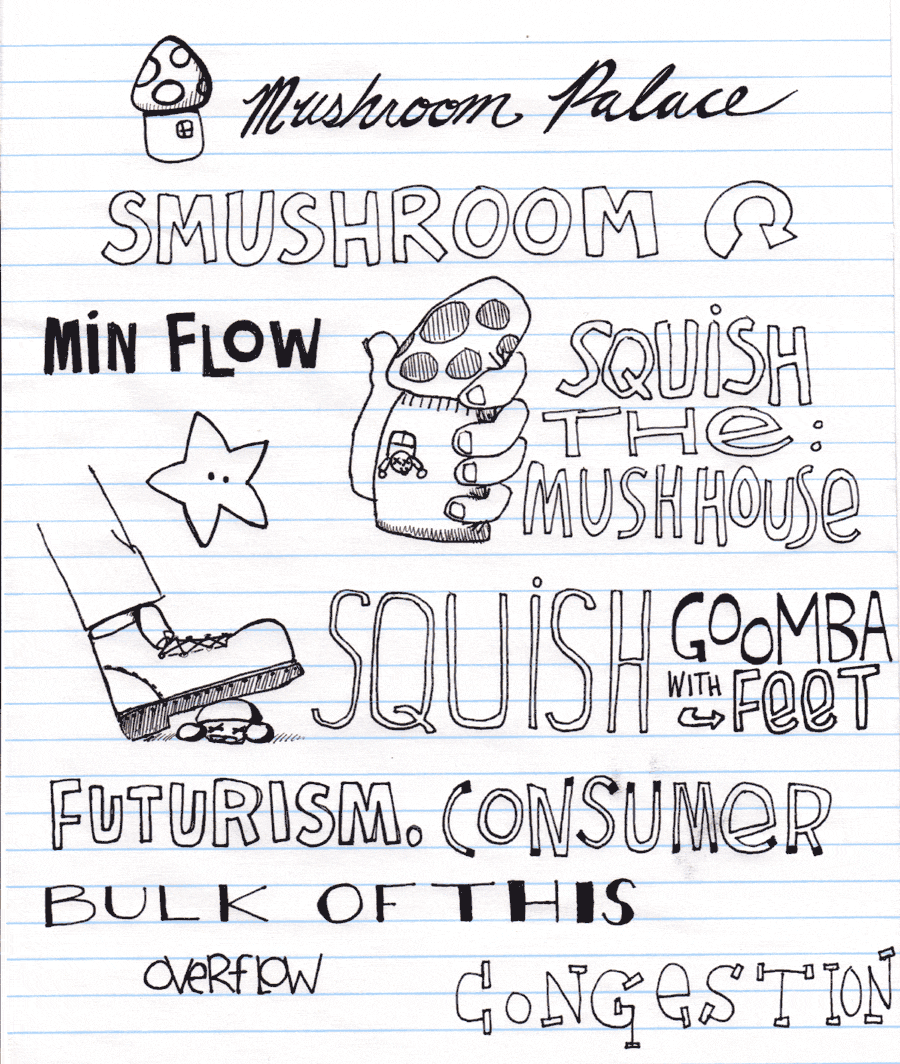 Mushroom Palace
SMUSHROOM
MiN FLOW
SQUiSH
THe:
MUSHHOUSe
SQUiSH GOOMBA
WITH FeeT
FUTURISM. CONSUMeR
BULK OF THIS
OVeRfLOW
CONGeSTION